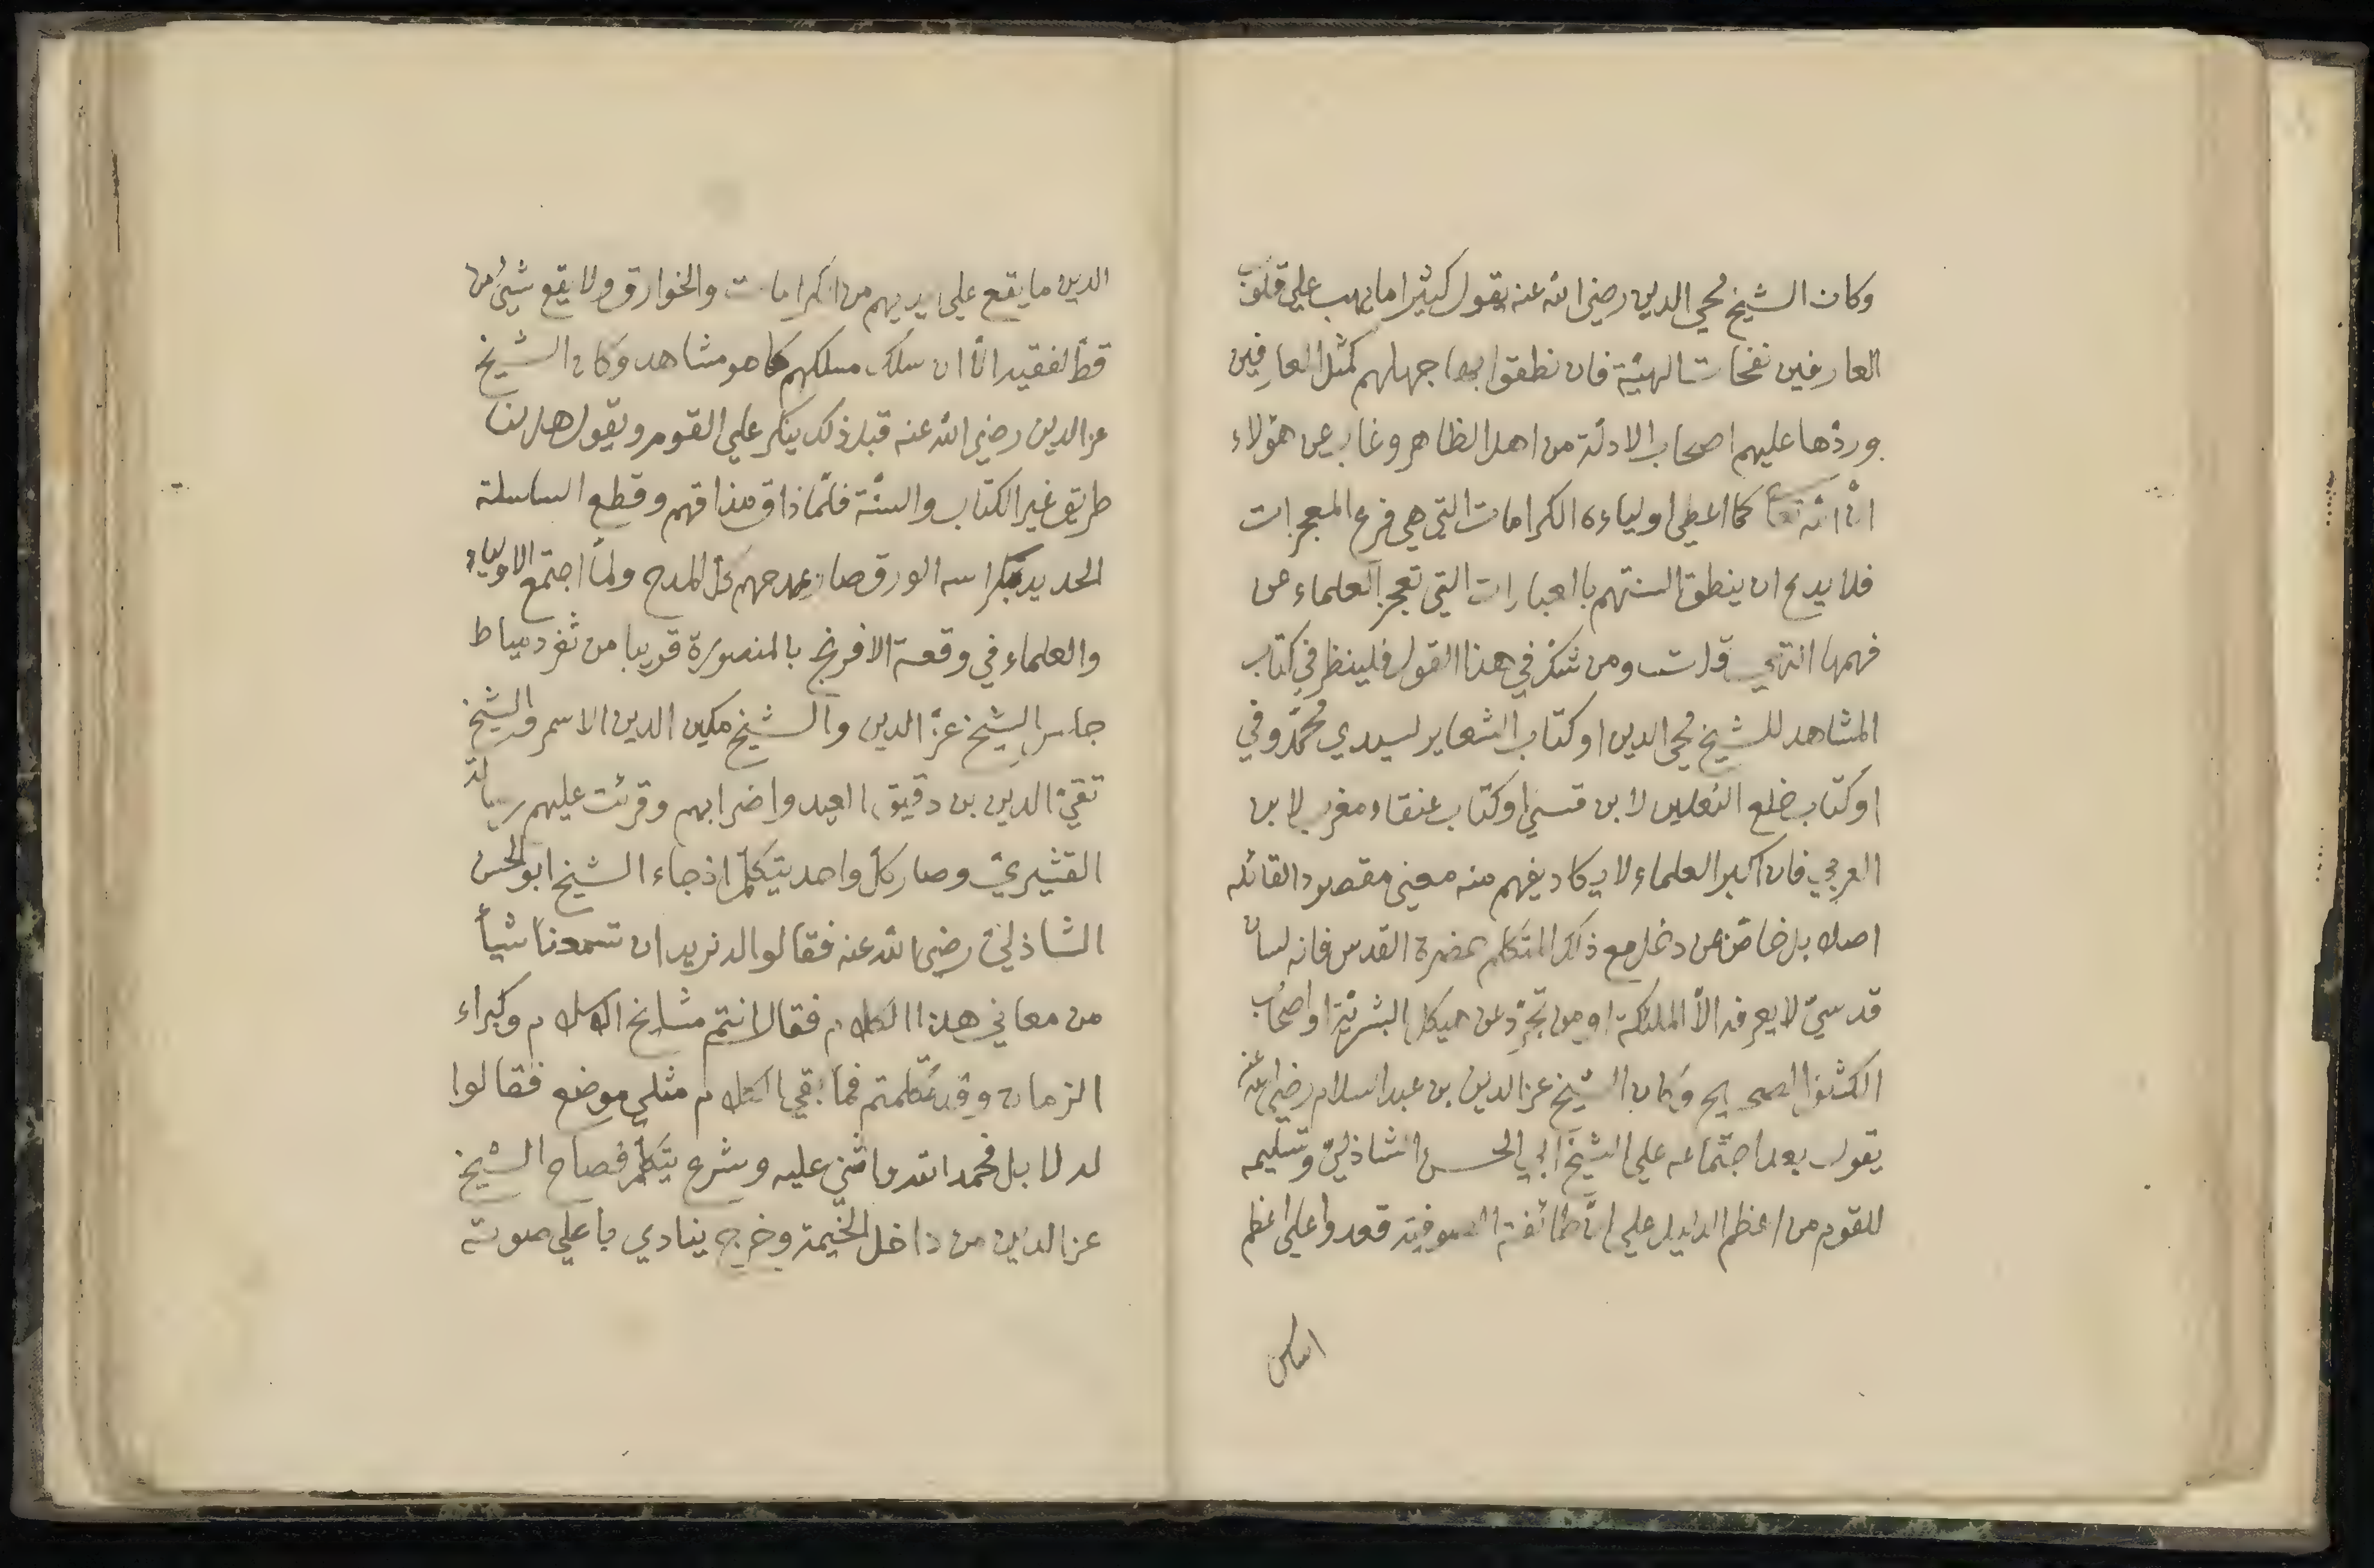 وكان الشيخ محي الدين رضي الله عنه يقول كثيرا ما يهب علي قلوب
العارفين نفحات الهيّة فان نطقوا بها جهلهم كمّل العارفين
وردّها عليهم اصحاب الادلّة من اهل الظاهر وغاب عن هؤلاء
انّ الله تعا كما اعطي اولياءه الكرامات التي هي فرع المعجزات
فلا بدع ان ينطق السنتهم بالعبارات التي تعجز العلماء عن
فهمها انتهي قلت ومن شكّ في هذا القول فلينظر في كتاب
المشاهد للشيخ محي الدين او كتاب الشعاير لسيدي محمّد وفي
او كتاب خلع النعلين لابن قسيّ او كتاب عنقاء مغرب لابن
العربي فان اكبر العلماء لا يكاد يفهم منه معني مقصود القائله
اصلا بل خاصّ بمن دخل مع ذلك المتكلم حضرة القدس فانه لسان
قدسيّ لا يعرفه الاّ الملئكة او من تجرّد عن هيكل البشريّة او اصحاب
الكشف الصحيح وكان الشيخ عز الدين بن عبد السلام رضي الله عنه
يقول بعد اجتماعه علي الشيخ ابي الحسن الشاذليّ وتسليمه
للقوم من اعظم الدليل علي انّ طائفة الصوفيّة قعدوا علي اعظم
اساس
الدين ما يقع علي يديهم من الكرامات والخوارق ولا يقع شئ من
قطّ لفقيه الاّ ان سلك مسلكهم كما هو مشاهد وكان الشيخ
عز الدين رضي الله عنه قبل ذلك ينكر علي القوم ويقول هل لنا
طريق غير الكتاب والسنّة فلمّا ذاق مذاقهم وقطع السلسلة
الحديد بكراسه الورق صار يمدحهم كلّ المدح ولمّا اجتمع الاولياء
والعلماء في وقعة الافرنج بالمنصورة قريبا من ثغر دمياط
جلس الشيخ عزّ الدين والشيخ مكين الدين الاسمر والشيخ
تقيّ الدين بن دقيق العيد واضرابهم وقرئت عليهم رسالة
القشيريّ وصار كلّ واحد يتكلّم اذ جاء الشيخ ابو الحسن
الشاذليّ رضي الله عنه فقالوا له نريد ان تسمعنا شيأ
من معاني هذا الكلام فقال انتم مشايخ الاسلام وكبراء
الزمان وقد تكلّمتم فما بقي لكلام مثلي موضع فقالوا
له لا بل فحمد الله واثني عليه وشرع يتكلّم فصاح الشيخ
عز الدين من داخل الخيّمة وخرج ينادي باعلي صوته